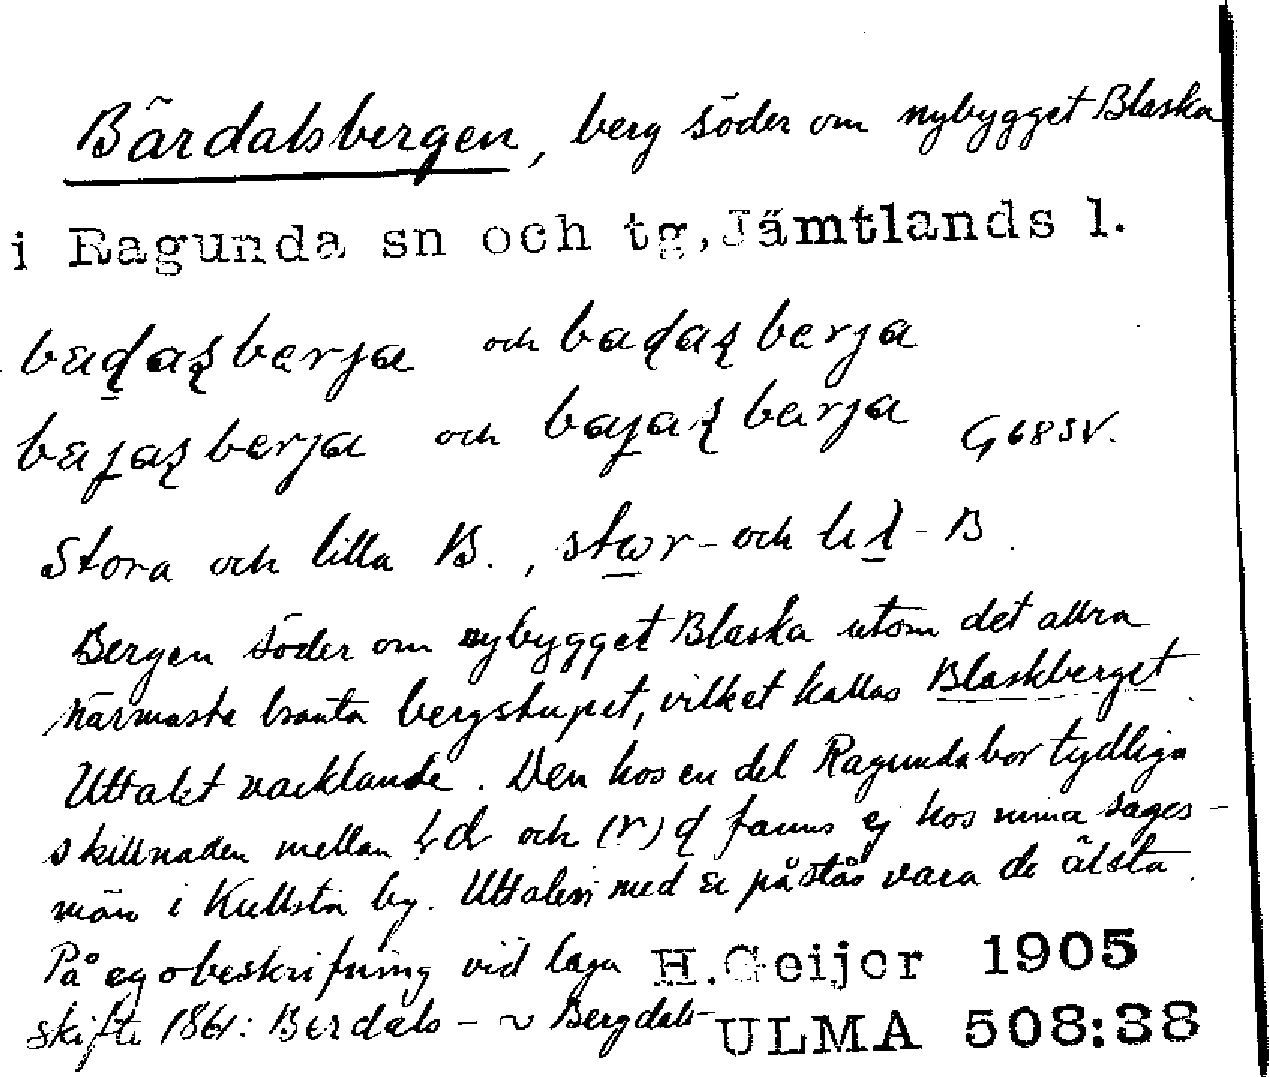 Bärdalsbergen, berg söder om nybygget Blaska
i Ragunda sn och tg, Jämtlands l.
och
och G68SV.
Stora och lilla B., stωr- och - B.
Bergen söder om nybygget Blaska utom det allra
närmaste branta bergstupet, vilket kallas Blaskberget.
Uttalet vacklande. Den hos en del Ragundabor tydliga
skillnaden mellan och fanns ej hos mina sages-
män i Kullsta by. Uttalen med påstås vara de älsta.
På egobeskrifning vid laga H.Geijer 1905
skifte 1861: Berdals- ~ Bergdals- ULMA 508:38